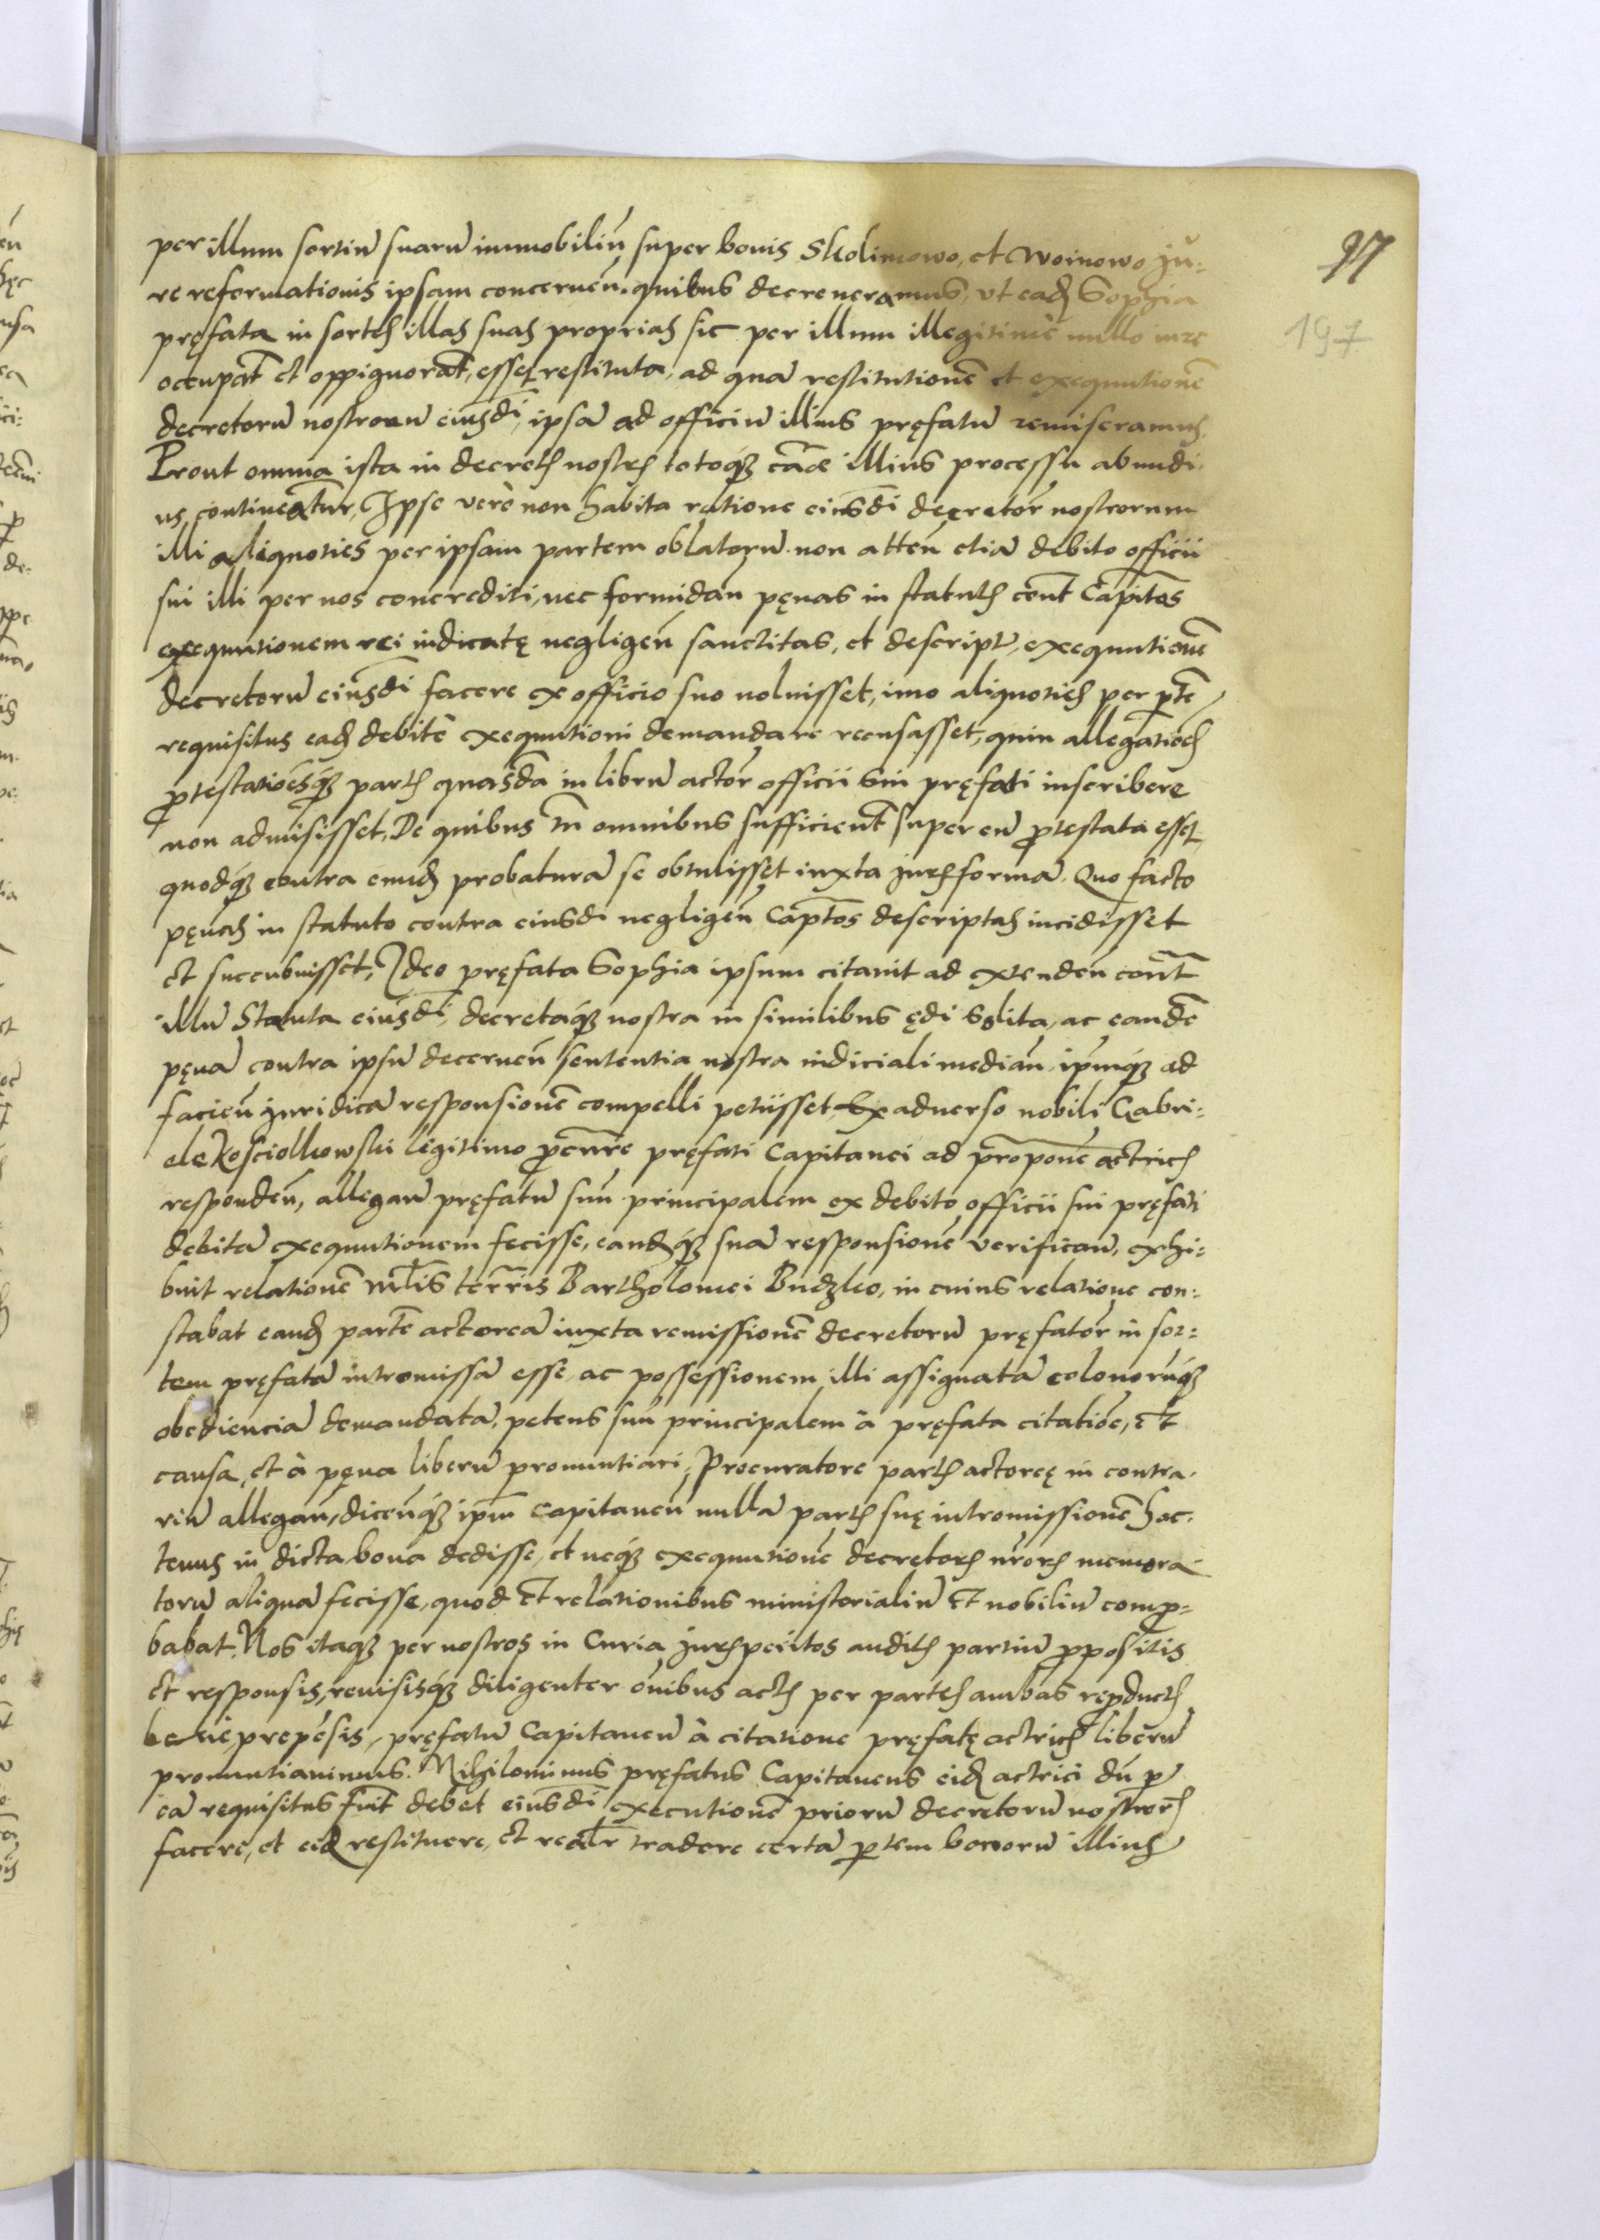 per illum sortiū suarū immobiliū super bonis Skolimowo, et Woinowo Ju-
re reformationis ipsam concerneñ. quibus decreueramus, vt eadē Sophia
pręfata in sortes illas suas proprias sic per illum illegitimè nullo iure
occupat̄ et oppignorat̄, esset restituta, ad quā restitutionē et exequutionē
decretorū nostrorū eiusdī, ipsā ad officiū illius pręfatū remiseramus.
Prout omnia ista in decretis nostris totoq́ꝫ cāæ illius processu abundi-
us continentur, Ipse verò non habita ratione eiusdī decretor̄ nostrorum
illi aliquoties per ipsam partem oblatorū. non atteñ etiā debito officii
sui illi per nos concrediti, nec formidañ pęnas in statutis cont̄ Capitos
exequutionem rei iudicatę negligeñ sanctitas, et descript, exequutionē
decretorū eiusdī facere ex officio suo noluisset, imo aliquoties per ptē
requisitus eadē debitè exequutioni demandare recusasset, quin allegatiōes
ꝓtestatiōesq́ꝫ partis quasdā in librū actor̄ officii sui pręfati inscribere
non admisisset, De quibus tn̄ omnibus sufficient̄ super eū ꝓtestata esset,
quodq́ꝫ contra eundē probaturā se obtulisset iuxta Juris formā. Quo facto
pęnas in statuto contra eiusdī negligeñ Captos descriptas incidisset
et succubuisset, Ideo pręfata Sophia ipsum citauit ad extendeñ cont̄
illū Statuta eiusdī, decretaq́ꝫ nostra in similibus ędi solita, ac eandē
pęnā contra ipsū decerneñ sententia nostra iudiciali mediañ, ipm̄q́ꝫ ad
facieñ Juridicā responsionē compelli petiisset Ex aduerso nobili Gabri-
ele Kosciolkowski legitimo ꝓcur̄re pręfati Capitanei ad proponē actricis
respondeñ, allegañ pręfatū suū principalem ex debito officii sui pręfati
debitā exequutionem fecisse, eandēq́ꝫ suā responsionē verificañ, exhi-
buit relationē m̄lis terr̄ris Bartholomei Budzko, in cuius relatione con-
stabat eandē partē actoreā iuxta remissionē decretorū pręfator̄ in sor-
tem pręfatā intromissā esse, ac possessionem illi assignatā colonorūq́ꝫ
obedienciā demandatā, petens suū principalem à pręfata citatiōe, et
causa, et à pęna liberū pronuntiari, Procuratore partis actoreę in contra-
riū allegañ, diceñq́ꝫ ipm̄ Capitaneū nullā partis suę intromissionē hac-
tenus in dicta bona dedisse, et neq́ꝫ exequutionē decretoris nr̄oris memora-
torū aliquā fecisse, quod et relationibus ministerialiū et nobiliū compro-
babat. Nos itaq́ꝫ per nostros in Curia Jurisperitos auditis partiū ꝓpositis
et responsis, reuisisq́ꝫ diligenter ōnibus actis per partes ambas reproductis
bene prepēsis, pręfatū Capitaneū à citatione pręfatę actricis liberū
pronuntiauimus. Nihilominus pręfatus Capitaneus eidē actrici dū ꝑ
eā requisitus fuit debet eiusdī executionē priorū decretorū nostroris
facere, et eidē restituere, et realr̄ tradere certā ꝑtem bonorū illius
97
197